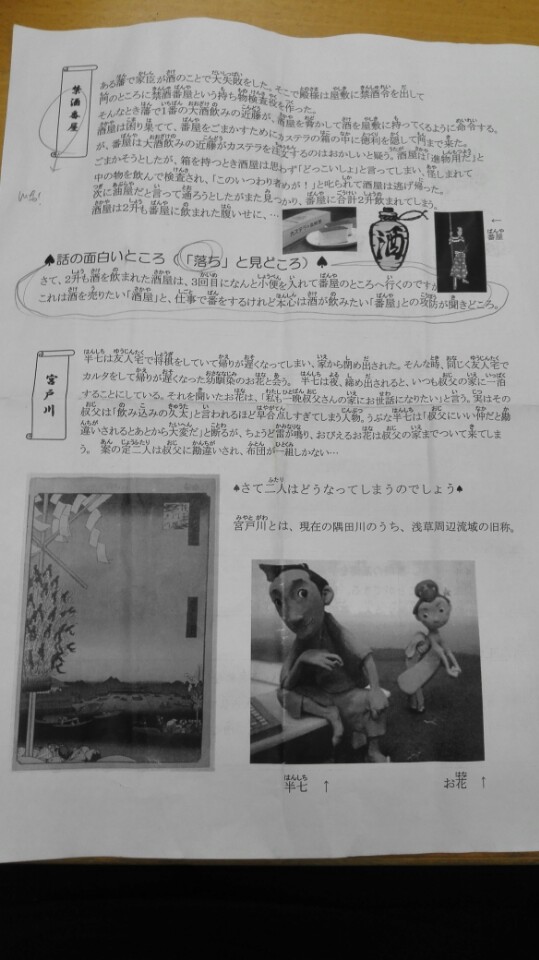 禁酒番屋
ある藩で家臣が酒のことで大失敗をした。そこで殿様は屋敷に禁酒令を出して
門のところに禁酒番屋という持ち物検査役を作った。
そんなとき藩で1番の大酒飲みの近藤が、番屋を脅かして酒を屋敷に持ってくるように命令する。
酒屋は困り果てて、番屋をごまかすためにカステラの箱の中に徳利を隠して門まで来た。
が、番屋は大酒飲みの近藤がカステラを注文するのはおかしいと疑う。酒屋は「進物用だ」と
ごまかそうとしたが、箱を持つとき酒屋は思わず「どっこいしょ」と言ってしまい、怪しまれて
中の物を飲んで検査され、「このいつわり者めが！」と叱られて酒屋は逃げ帰った。
次に油屋だと言って通ろうとしたがまた見つかり、番屋に合計2升飲まれてしまう。
酒屋は2升も番屋に飲まれた腹いせに、…
酒
←
番屋
♠話の面白いところ（「落ち」と見どころ）♠
さて、2升も酒を飲まれた酒屋は、3回目になんと小便を入れて番屋のところへ行くのですが
これは酒を売りたい「酒屋」と、仕事で番をするけれど本心は酒が飲みたい「番屋」との攻防が聞きどころ。
宮戸川
半七は友人宅で将棋をしていて帰りが遅くなってしまい、家から閉め出された。そんな時、同じく友人宅で
カルタをしてて帰りが遅くなった幼馴染のお花と会う。半七は夜、締め出されると、いつも叔父の家に一泊
することにしている。それを聞いたお花は、「私も一晩叔父さんの家にお世話になりたい」と言う。実はその
叔父は「飲み込みの久太」と言われるほど早合点しすぎてしまう人物。うぶな半七は「叔父にいい仲だと勘
違いされるとあとから大変だ」と断るが、ちょうど雷が鳴り、おびえるお花は叔父の家までついて来てしま
う。 案の定二人は叔父に勘違いされ、布団が一組しかない…
♠さて二人はどうなってしまうのでしょう♠
宮戸川とは、現在の隅田川のうち、浅草周辺流域の旧称。
半七 ↑
お花 ↑